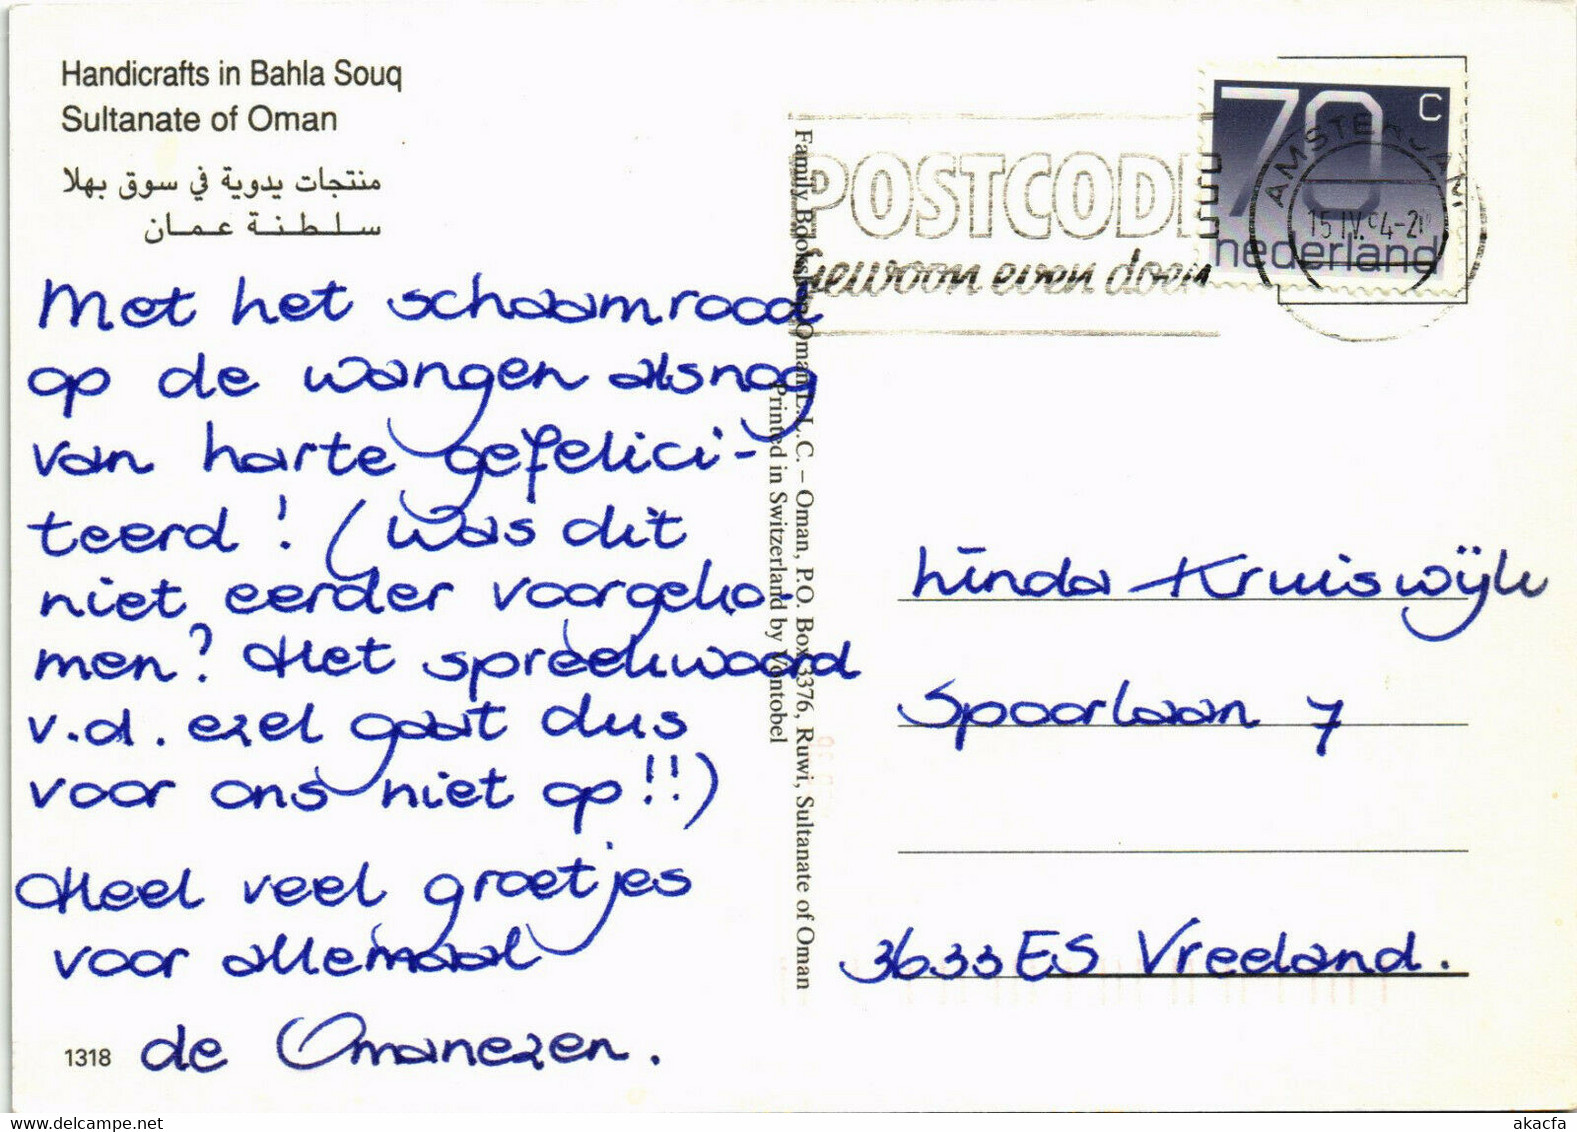 Handicrafts in Bahla Souq
Sultanate of Oman
منتجات يدوية في سوق بهلا
سلطنة عمان
Met het schaamrood
op de wangen alsnog
van harte gefelici-
teerd! (Was dit
niet eerder voorgeko-
men? Het spreekwoord
v.d. ezel gaat dus
voor ons niet op!!)
Heel veel groetjes
voor allemaal
de Omanezen.
1318
Family Bookshop Oman L.L.C. – Oman, P.O. Box 3376, Ruwi, Sultanate of Oman
Printed in Switzerland by Vontobel
POSTCODE
gewoon even doen
70 c
nederland
AMSTERDAM
15 IV. 94-2
Linda Kruiswijk
Spoorlaan 7
3633 ES Vreeland.
https://www.delcampe.net
akacfa